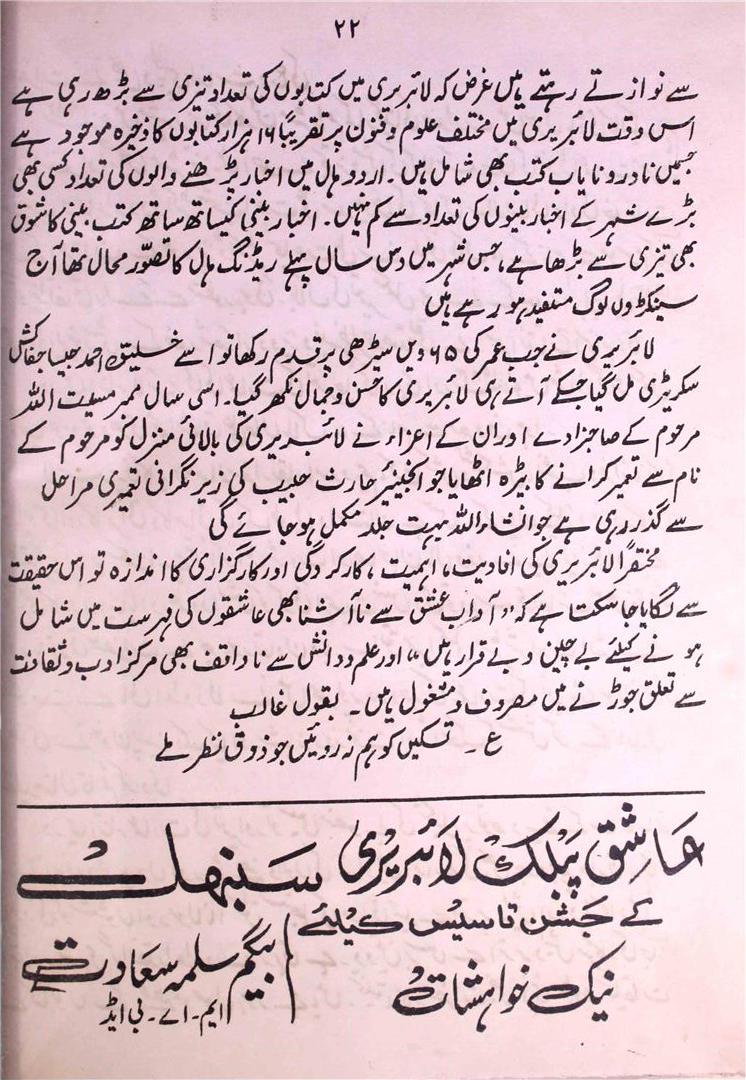 ۲۲
سے نوازتے رہتے ہیں غرض کہ لائبریری میں کتابوں کی تعداد تیزی سے بڑھ رہی ہے
اس وقت لائبریری میں مختلف علوم و فنون پر تقریباً ۱۶ ہزار کتابوں کا ذخیرہ موجود ہے
جسمیں نادر و نایاب کتب بھی شامل ہیں۔ اردو ہال میں اخبار پڑھنے والوں کی تعداد کسی بھی
بڑے شہر کے اخبار بینوں کی تعداد سے کم نہیں۔ اخبار بینی کیساتھ ساتھ کتب بینی کا شوق
بھی تیزی سے بڑھا ہے، جس شہر میں دس سال پہلے ریڈنگ ہال کا تصوّر محال تھا آج
سینکڑوں لوگ مستفید ہو رہے ہیں
لائبریری نے جب عمر کی ۶۵ ویں سیڑھی پر قدم رکھا تو اسے خلیق احمد جیسا جفاکش
سکریٹری مل گیا جسکے آتے ہی لائبریری کا حسن و جمال نکھر گیا۔ اسی سال ممبر مسیت اللہ
مرحوم کے صاحبزادے اور ان کے اعزاء نے لائبریری کی بالائی منزل کو مرحوم کے
نام سے تعمیر کرانے کا بیڑہ اٹھایا جو انجینیر حارث حبیب کی زیر نگرانی تعمیری مراحل
سے گذر رہی ہے جو انشاء اللہ بہت جلد مکمل ہو جائے گی
مختصراً لائبریری کی افادیت، اہمیت، کارکردگی اور کارگزاری کا اندازہ تو اس حقیقت
سے لگایا جا سکتا ہے کہ ”آداب عشق سے ناآشنا بھی عاشقوں کی فہرست میں شامل
ہونے کیلئے بے چین و بے قرار ہیں“ اور علم و دانش سے ناواقف بھی مرکز ادب و ثقافت
سے تعلق جوڑنے میں مصروف و مشغول ہیں۔ بقول غالب
ع۔ تسکیں کو ہم نہ روئیں جو ذوق نظر ملے
عاشق پبلک لائبریری سنبھل
کے جشن تاسیس کیلئے
نیک خواہشات
بیگم سلمہ سعادت
ایم۔اے۔بی ایڈ